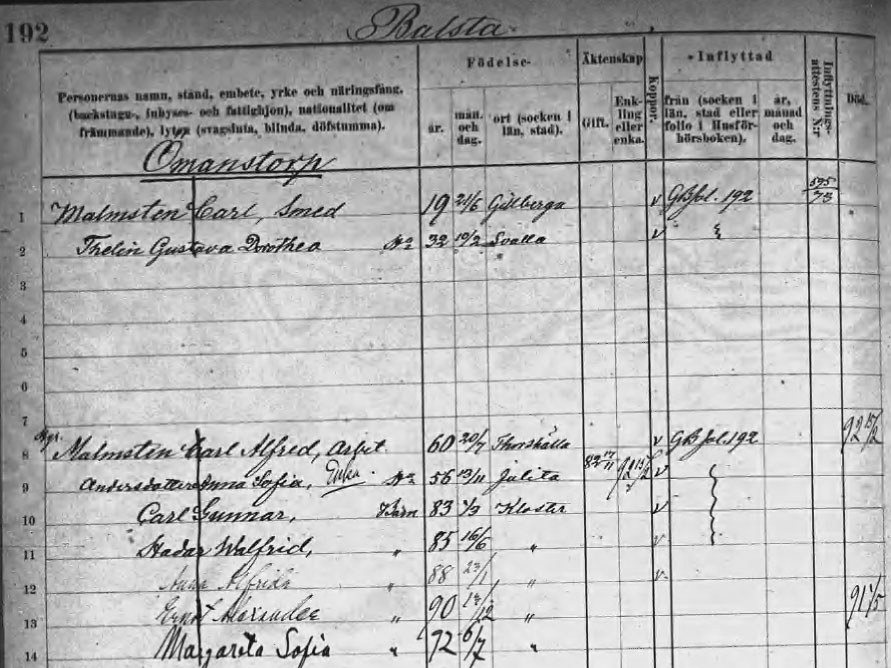 192 Balsta.
Personernas namn, stånd, embete, yrke och näringsfång, (backstugu-, inhyses- och fattighjon), nationalitet (om främmande), lyten (svagsinta, blinda, döfstumma).
Födelse-
år.
mån. och dag.
ort (socken i län, stad).
Äktenskap
Gift.
Enkling eller enka.
Koppor.
Inflyttad
från (socken i län, stad eller folio i Husförhörsboken).
år, månad och dag.
Inflyttningsattestens N:r
Död.
Omanstorp
1 Malmsten Carl, Smed 19 Gillberga v GB fol. 192 595/73
2 Thelin Gustava Dorothea Hu 32 19/2 Svalla v
3
4
5
6
7
8 Malmsten Carl Alfred, Arbet 60 20/7 Thorshälla v GB fol. 192 92 15/2
9 Andersdotter Anna Sofia, Enka. Hu 56 13/11 Julita 82 17/11 92 15/2 v
10 Carl Gunnar, Barn 83 Kloster v
11 Hadar Walfrid, " 85 16/6 " v
12 Anna Alfrida " 88 " v
13 Ernst Alexander " 90 " 91 1/5
14 Margareta Sofia " 92 6/7 "